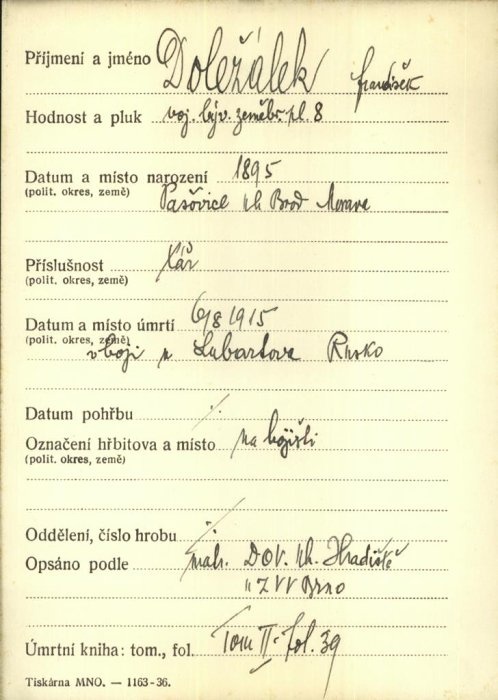 Příjmení a jméno Doležálek František
Hodnost a pluk voj. býv. zeměbr. pl. 8
Datum a místo narození 1895
(polit. okres, země) Pašovice Uh Brod Morava
Příslušnost tář
(polit. okres, země)
Datum a místo úmrtí 6/8 1915
(polit. okres, země) v boji u Lubartova Rusko
Datum pohřbu ·/.
Označení hřbitova a místo na bojišti
(polit. okres, země)
Oddělení, číslo hrobu ·/.
Opsáno podle matr. DOV. Uh. Hradiště
" ZVV Brno
Úmrtní kniha: tom., fol. Tom II - fol. 39
Tiskárna MNO. — 1163-36.